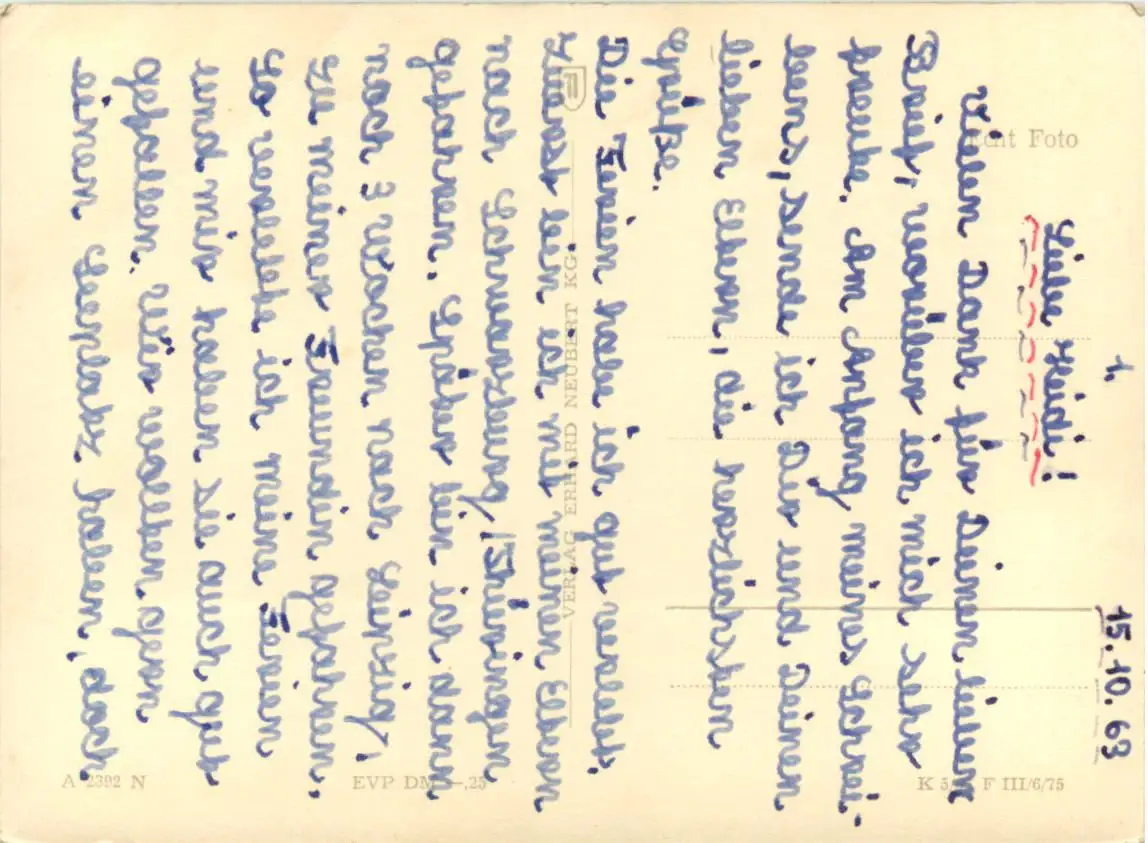 1.
15.10.63
Liebe Heidi!
Vielen Dank für Deinen lieben
Brief, worüber ich mich sehr
freute. Am Anfang meines Schrei-
bens, sende ich Dir und Deinen
lieben Eltern, die herzlichsten
Grüße.
Die Ferien habe ich gut verlebt.
Zuerst bin ich mit meinen Eltern
nach Schwarzburg/Thüringen
gefahren. Später bin ich dann
noch 3 Wochen nach Leipzig,
zu meiner Freundin gefahren.
So verlebte ich meine Ferien
und mir haben sie auch gut
gefallen. Wir wollten gern
einen Seeplatz haben, doch
Echt Foto
VERLAG ERHARD NEUBERT KG
A 2392 N
EVP DM —,25
F III/6/75